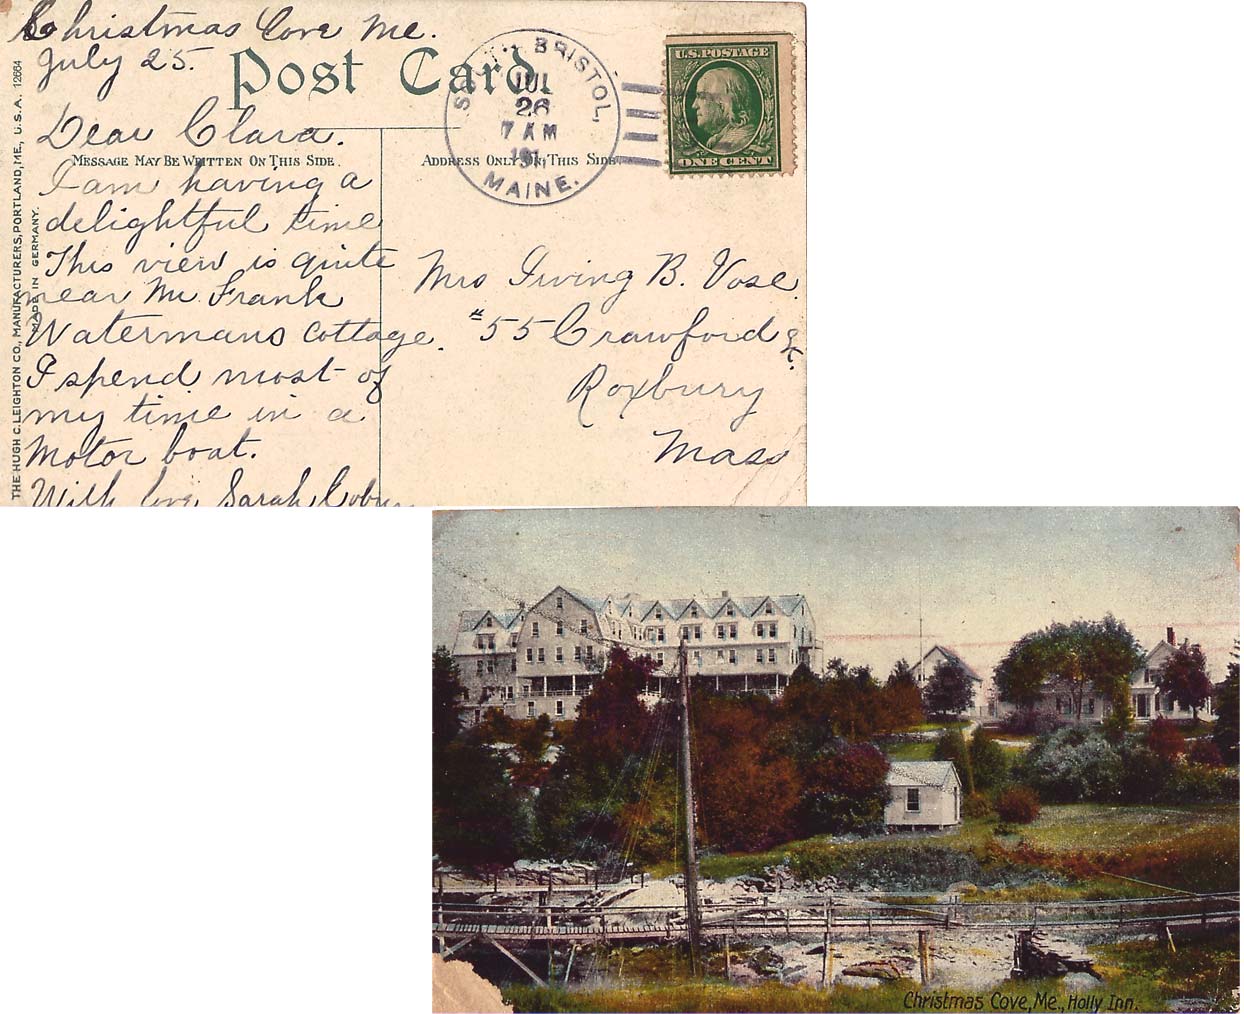 Christmas Cove Me.
July 25.
Post Card.
BRISTOL,
JUL
26
7 AM
MAINE.
U.S. POSTAGE
ONE CENT
Dear Clara.
MESSAGE MAY BE WRITTEN ON THIS SIDE.
ADDRESS ONLY ON THIS SIDE
I am having a
delightful time
This view is quite
near Mr. Frank
Watermans cottage.
I spend most of
my time in a
Motor boat.
With love, Sarah
Mrs Irving B. Vose.
#55 Crawford St.
Roxbury
Mass
THE HUGH C. LEIGHTON CO., MANUFACTURERS, PORTLAND, ME., U.S.A. 12664
MADE IN GERMANY.
Christmas Cove, Me., Holly Inn.